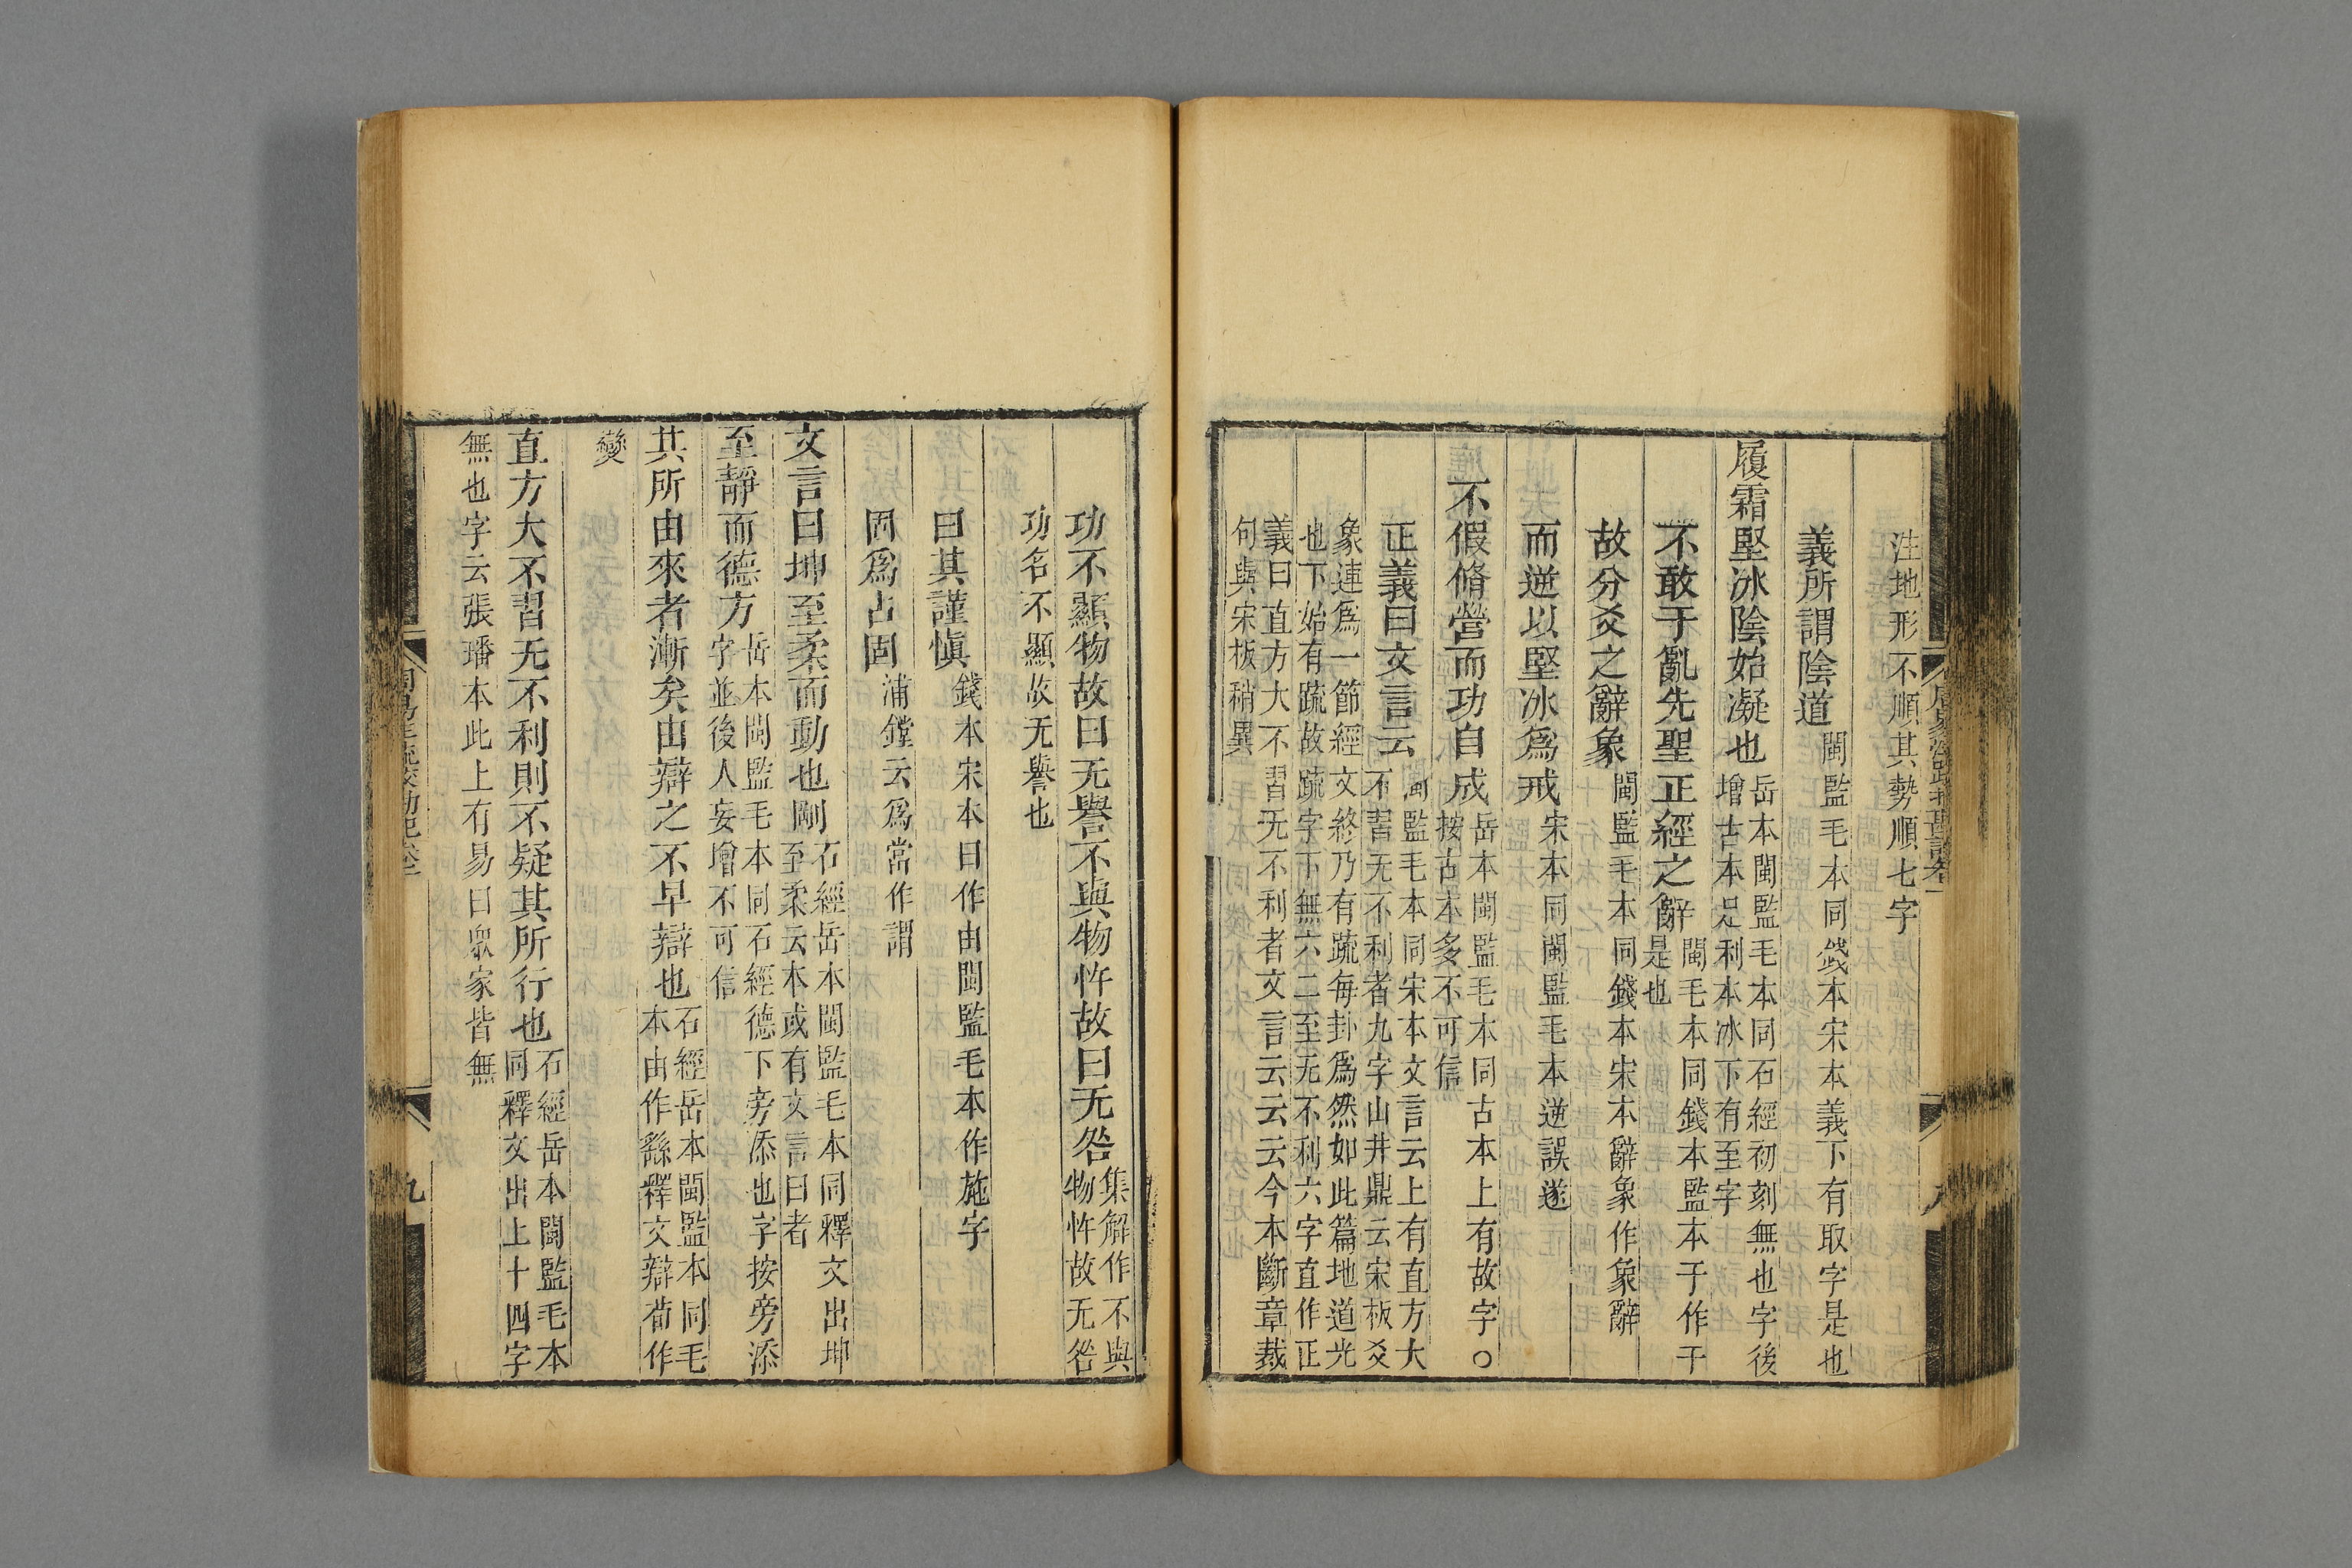 注地形不順其勢順七字
義所謂陰道閩監毛本同錢本宋本義下有取字是也
履霜堅冰陰始凝也岳本閩監毛本同石經初刻無也字後
增古本足利本冰下有至字
不敢于亂先聖正經之辭閩毛本同錢本監本于作干
是也
故分爻之辭象閩監毛本同錢本宋本辭象作象辭
而逆以堅冰爲戒宋本同閩監毛本逆誤遂
不假脩營而功自成岳本閩監毛本同古本上有故字○
按古本多不可信
正義曰文言云閩監毛本同宋本文言云上有直方大
不習无不利者九字山井鼎云宋板爻
象連爲一節經文終乃有疏每卦爲然如此篇地道光
也下始有疏故疏字下無六二至无不利六字直作正
義曰直方大不習无不利者文言云云今本斷章裁
句與宋板稍異
功不顯物故曰无譽不與物忤故曰无咎集解作不與
物忤故无咎
功名不顯故无譽也
曰其謹愼錢本宋本曰作由閩監毛本作施字
固爲占固浦鏜云爲當作謂
文言曰坤至柔而動也剛石經岳本閩監毛本同釋文出坤
至柔云本或有文言曰者
至靜而德方岳本閩監毛本同石經德下旁添也字按旁添
字並後人妄增不可信
其所由來者漸矣由辯之不早辯也石經岳本閩監本同毛
本由作繇釋文辯荀作
變
直方大不習无不利則不疑其所行也石經岳本閩監毛本
同釋文出上十四字
無也字云張璠本此上有易曰衆家皆無
九